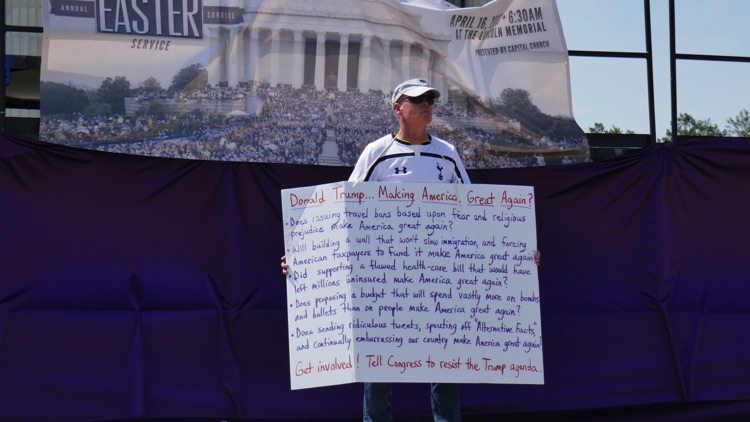 ANNUAL
EASTER
SUNRISE
SERVICE
APRIL 16,
6:30AM
AT THE LINCOLN MEMORIAL
PRESENTED BY CAPITAL CHURCH
Donald Trump... Making America Great Again?
• Does issuing travel bans based upon fear and religious
prejudice make America great again?
• Will building a wall that won't slow immigration, and forcing
American taxpayers to fund it make America great again?
• Did supporting a flawed health-care bill that would have
left millions uninsured make America great again?
• Does proposing a budget that will spend vastly more on bombs
and bullets than on people make America great again?
• Does sending ridiculous tweets, spouting off "Alternative Facts,"
and continually embarrassing our country make America great again?
Get involved! Tell Congress to resist the Trump agenda.